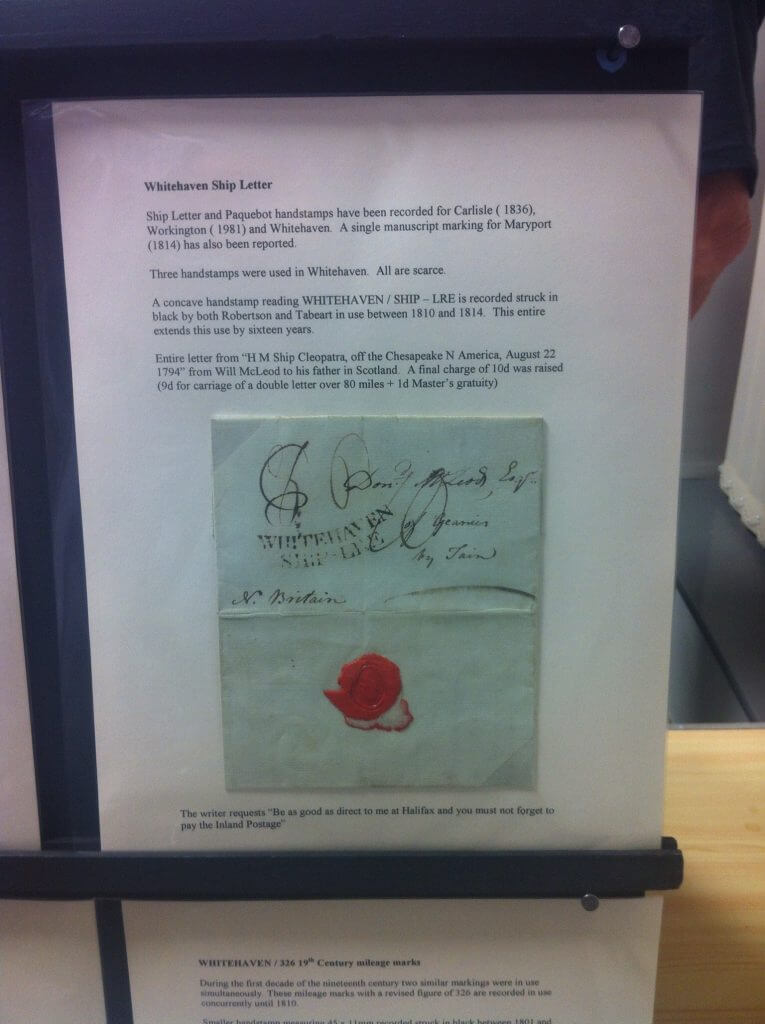 Whitehaven Ship Letter
Ship Letter and Paquebot handstamps have been recorded for Carlisle ( 1836),
Workington ( 1981) and Whitehaven. A single manuscript marking for Maryport
(1814) has also been reported.
Three handstamps were used in Whitehaven. All are scarce.
A concave handstamp reading WHITEHAVEN / SHIP – LRE is recorded struck in
black by both Robertson and Tabeart in use between 1810 and 1814. This entire
extends this use by sixteen years.
Entire letter from “H M Ship Cleopatra, off the Chesapeake N America, August 22
1794” from Will McLeod to his father in Scotland. A final charge of 10d was raised
(9d for carriage of a double letter over 80 miles + 1d Master's gratuity)
Don^d McLeod, Esq^r
WHITEHAVEN
SHIP-LRE
of Geanies
by Tain
N. Britain
The writer requests “Be as good as direct to me at Halifax and you must not forget to
pay the Inland Postage”
WHITEHAVEN / 326 19th Century mileage marks
During the first decade of the nineteenth century two similar markings were in use
simultaneously. These mileage marks with a revised figure of 326 are recorded in use
concurrently until 1810.
Smaller handstamp measuring 45 x 11mm recorded struck in black between 1801 and